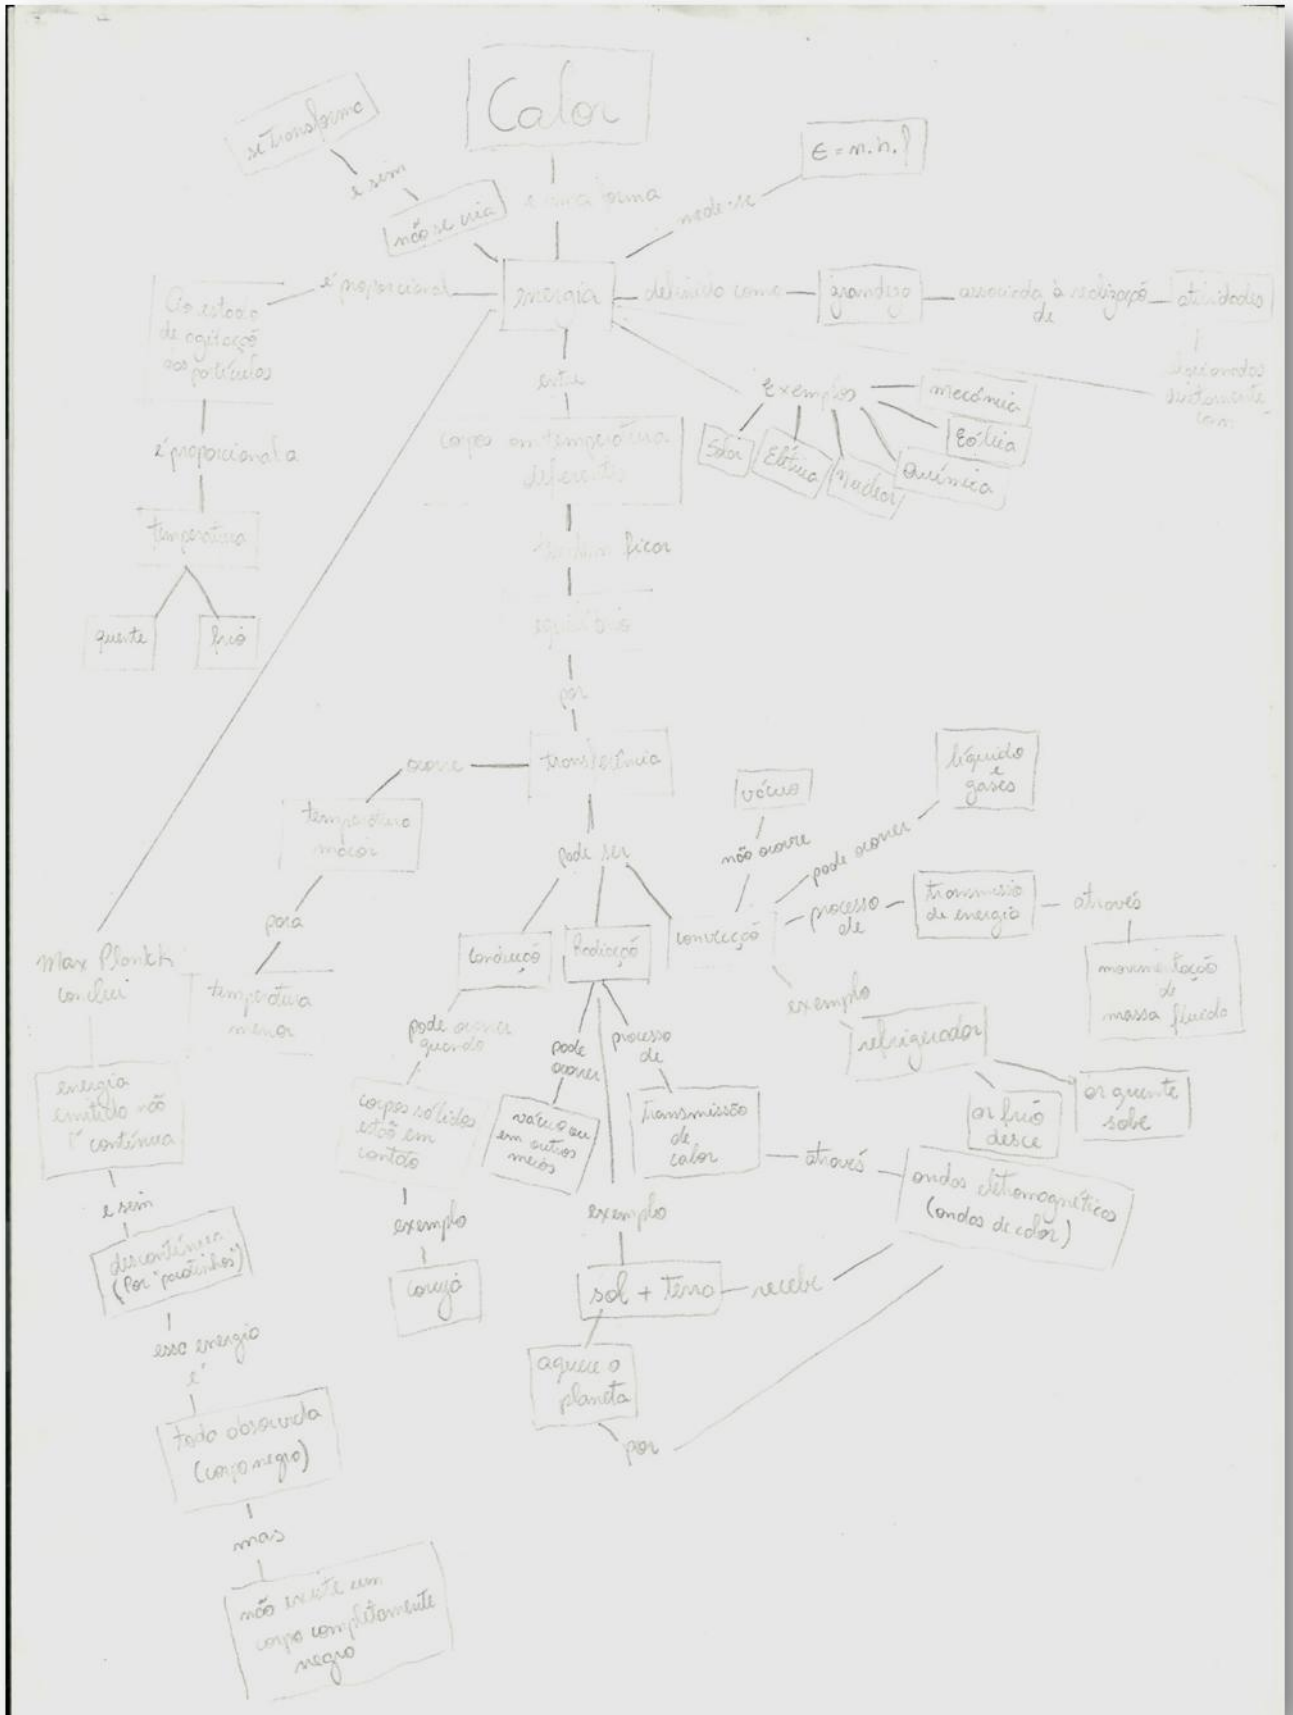 Calor
se transforma
e sim
não se cria
é uma forma
mede-se
E = n.h.f
energia
é proporcional
Ao estado
de agitação
das partículas
é proporcional a
temperatura
quente
frio
definido como
grandeza
associada à realização
de
atividades
diretamente
com
Exemplos
mecânica
Eólica
Química
Nuclear
Elétrica
Solar
entre
corpos em temperatura
diferentes
tendem ficar
equilíbrio
por
transferência
ocorre
temperatura
maior
para
temperatura
menor
pode ser
condução
Radiação
convecção
não ocorre
vácuo
pode ocorrer
líquido
e
gases
processo
de
transmissão
de energia
através
movimentação
de
massa fluida
exemplo
refrigerador
ar frio
desce
ar quente
sobe
pode ocorrer
quando
corpos sólidos
estão em
contato
exemplo
pode
ocorrer
vácuo ou
em outros
meios
processo
de
transmissão
de
calor
através
ondas eletromagnéticas
(ondas de calor)
exemplo
sol + Terra
recebe
aquece o
planeta
por
Max Planck
conclui
energia
emitida não
é contínua
e sim
descontínua
(Por "pacotinhos")
essa energia
é
toda absorvida
(corpo negro)
mas
não existe um
corpo completamente
negro